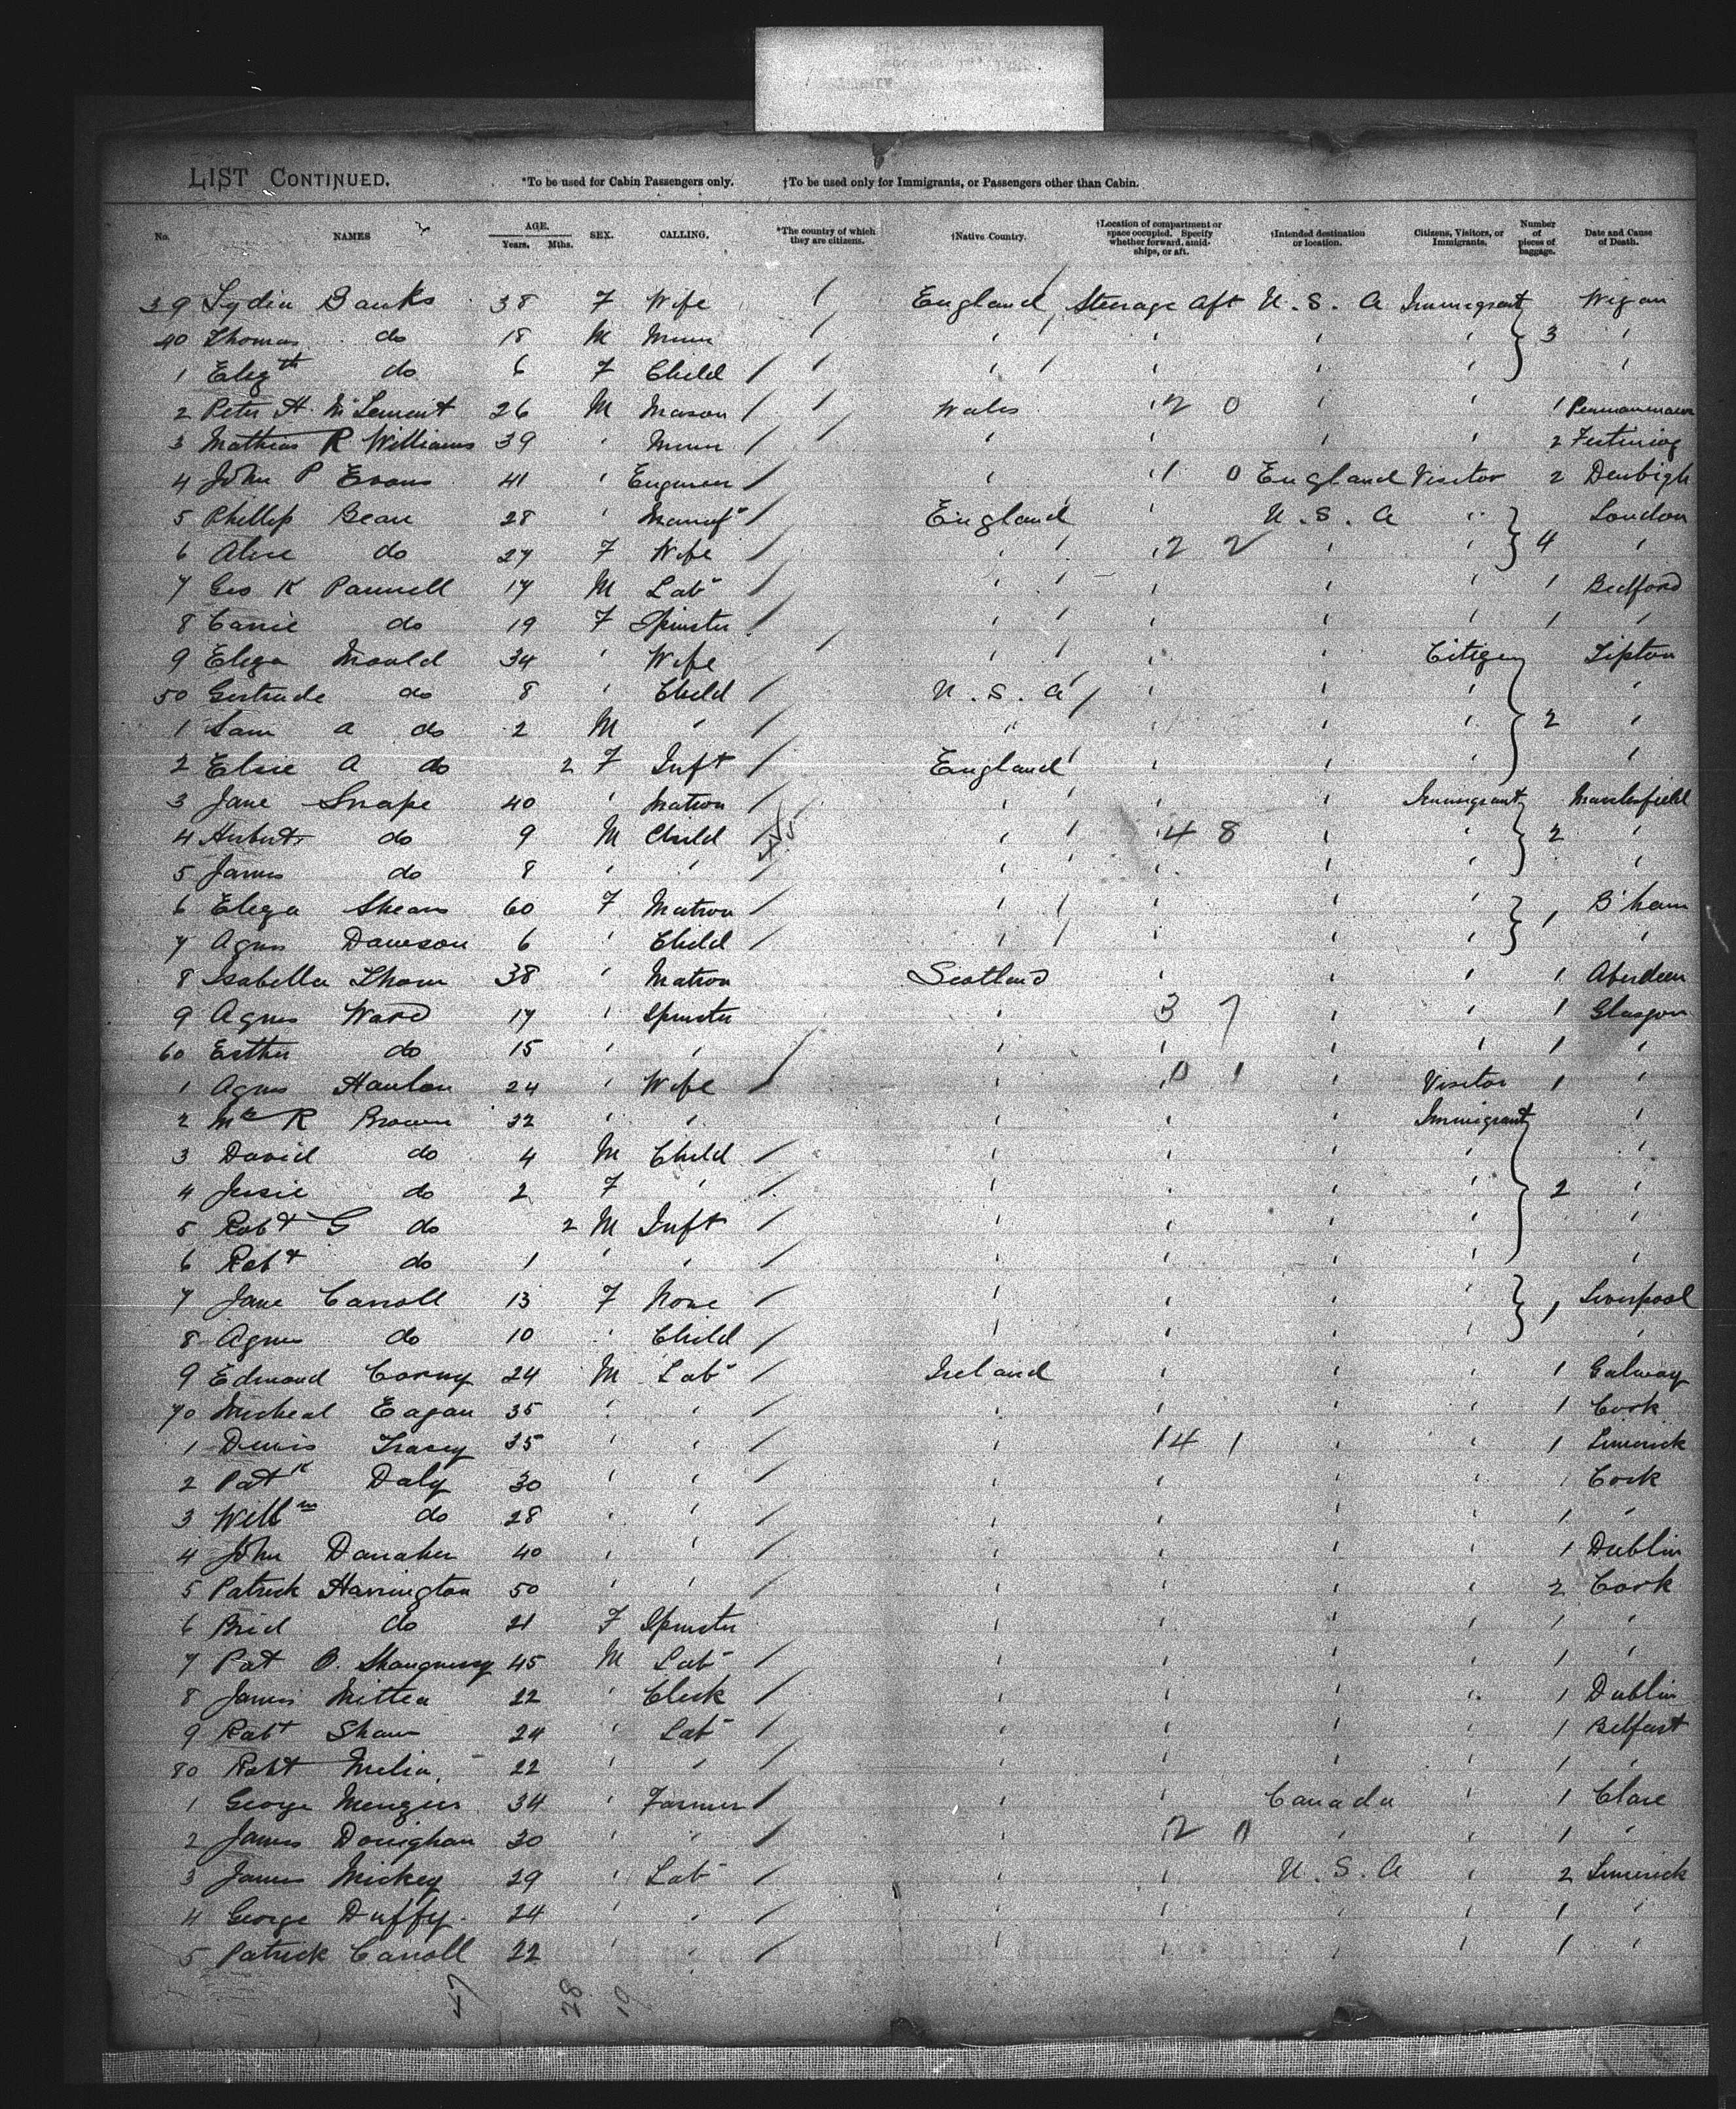 LIST CONTINUED. *To be used for Cabin Passengers only. †To be used only for Immigrants, or Passengers other than Cabin.
No. NAMES AGE. Years. Mths. SEX. CALLING. *The country of which they are citizens. †Native Country. †Location of compartment or space occupied. Specify whether forward, amidships, or aft. †Intended destination or location. Citizens, Visitors, or Immigrants. Number of pieces of baggage. Date and Cause of Death.
39 Lydia Banks 38 F Wife England Steerage Aft U. S. A Immigrant Wigan
40 Thomas do 18 M Miner ' ' ' ' 3 '
1 Eliz th do 6 F Child ' ' ' ' '
2 Peter H. 26 M Mason Wales 2 0 ' ' 1
3 Mathias R Williams 39 ' Miner ' ' ' 2 Festiniog
4 John P Evans 41 ' Engineer ' 1 0 England Visitor 2 Denbigh
5 Phillip Bean 28 ' Manufr England ' U. S. A ' London
6 Alice do 27 F Wife ' 2 2 ' ' 4 '
7 Geo K Pannell 17 M Labr ' ' ' ' 1 Bedford
8 Carrie do 19 F Spinster ' ' ' ' 1 '
9 Eliza Mould 34 ' Wife ' ' ' Citizen Tipton
50 Gertrude do 8 ' Child U. S. A ' ' ' '
1 Sam A do 2 M ' ' ' ' ' 2 '
2 Elsie A do 2 F Inft England ' ' ' '
3 Jane Snape 40 ' Matron ' ' ' Immigrant Macclesfield
4 Herbert do 9 M Child ' 4 8 ' ' 2 '
5 James do 8 ' ' ' ' ' ' '
6 Eliza Shears 60 F Matron ' ' ' ' 1 B'ham
7 Agnes Dawson 6 ' Child ' ' ' ' '
8 Isabella Thom 38 ' Matron Scotland ' ' ' 1 Aberdeen
9 Agnes Ward 17 ' Spinster ' 3 7 ' ' 1 Glasgow
60 Esther do 15 ' ' ' ' ' ' 1 '
1 Agnes Hanlon 24 ' Wife ' 0 1 ' Visitor 1 '
2 R Brown 22 ' ' ' ' ' Immigrant '
3 David do 4 M Child ' ' ' ' '
4 Jessie do 2 F ' ' ' ' ' 2 '
5 Robt G do 2 M Inft ' ' ' ' '
6 Robt do 1 ' ' ' ' ' ' '
7 Jane Carroll 13 F None ' ' ' ' 1 Liverpool
8 Agnes do 10 ' Child ' ' ' ' '
9 Edmond 24 M Labr Ireland ' ' ' 1 Galway
70 Micheal Eagan 35 ' ' ' ' ' ' 1 Cork
1 Denis Tracey 25 ' ' ' 14 1 ' ' 1 Limerick
2 Patk Daly 30 ' ' ' ' ' ' 1 Cork
3 Willm do 28 ' ' ' ' ' ' 1 '
4 John Danaher 40 ' ' ' ' ' ' 1 Dublin
5 Patrick Harrington 50 ' ' ' ' ' ' 2 Cork
6 Brid do 21 F Spinster ' ' ' ' 1 '
7 Pat O. Shaugnessy 45 M Labr ' ' ' ' 1 '
8 James 22 ' Clerk ' ' ' ' 1 Dublin
9 Robt Shaw 24 ' Labr ' ' ' ' 1 Belfast
80 Robt Melia 22 ' ' ' ' ' ' 1 '
1 George Menzies 34 ' Farmer ' ' Canada ' 1 Clare
2 James Donighan 30 ' ' ' 2 0 ' ' 1 '
3 James Mickey 29 ' Labr ' ' U. S. A ' 2 Limerick
4 George Duffy 24 ' ' ' ' ' ' 1 '
5 Patrick Carroll 22 ' ' ' ' ' ' 1 '
47 28 19